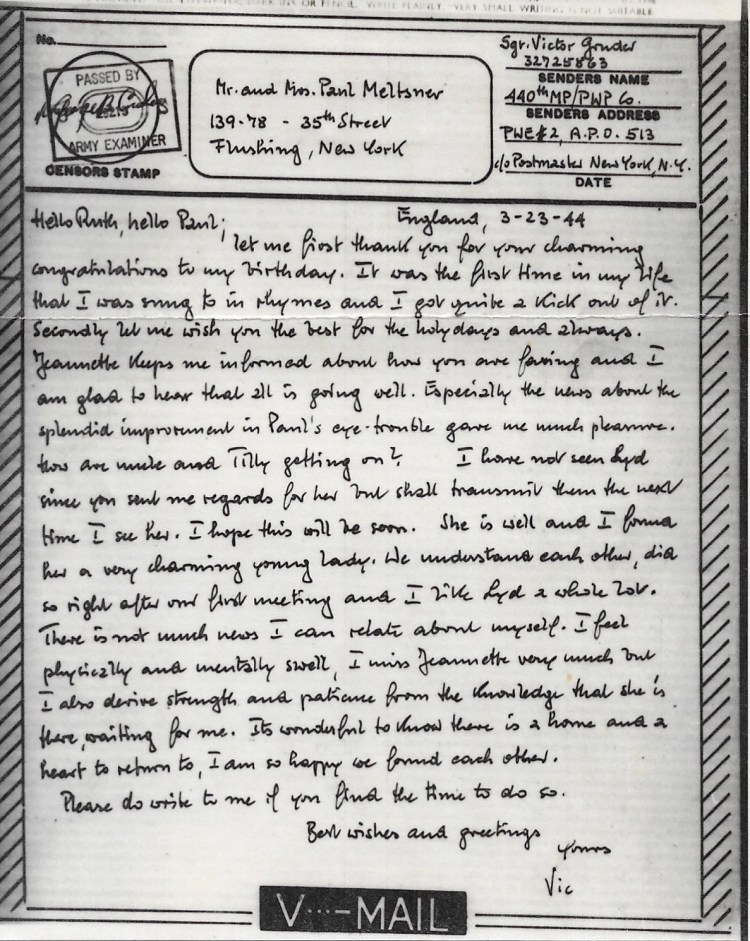 INK OR PENCIL. WRITE PLAINLY. VERY SMALL WRITING IS NOT SUITABLE.
No.
PASSED BY
ARMY EXAMINER
CENSORS STAMP
Mr. and Mrs. Paul Meltsner
139-78 - 35th Street
Flushing, New York
Sgr. Victor Gruder
32725863
SENDERS NAME
440th MP/PWP Co.
SENDERS ADDRESS
PWE#2, A.P.O. 513
c/o Postmaster New York, N.Y.
DATE
Hello Ruth, hello Paul; England, 3-23-44
let me first thank you for your charming
congratulations to my birthday. It was the first time in my life
that I was sung to in rhymes and I got quite a kick out of it.
Secondly let me wish you the best for the holydays and always.
Jeannette keeps me informed about how you are faring and I
am glad to hear that all is going well. Especially the news about the
splendid improvement in Paul's eye-trouble gave me much pleasure.
How are uncle and Tilly getting on? I have not seen Lyd
since you sent me regards for her but shall transmit them the next
time I see her. I hope this will be soon. She is well and I found
her a very charming young lady. We understand each other, did
so right after our first meeting and I like Lyd a whole lot.
There is not much news I can relate about myself. I feel
physically and mentally swell, I miss Jeannette very much but
I also derive strength and patience from the knowledge that she is
there, waiting for me. Its wonderful to know there is a home and a
heart to return to, I am so happy we found each other.
Please do write to me if you find the time to do so.
Best wishes and greetings
yours
Vic
V···—MAIL